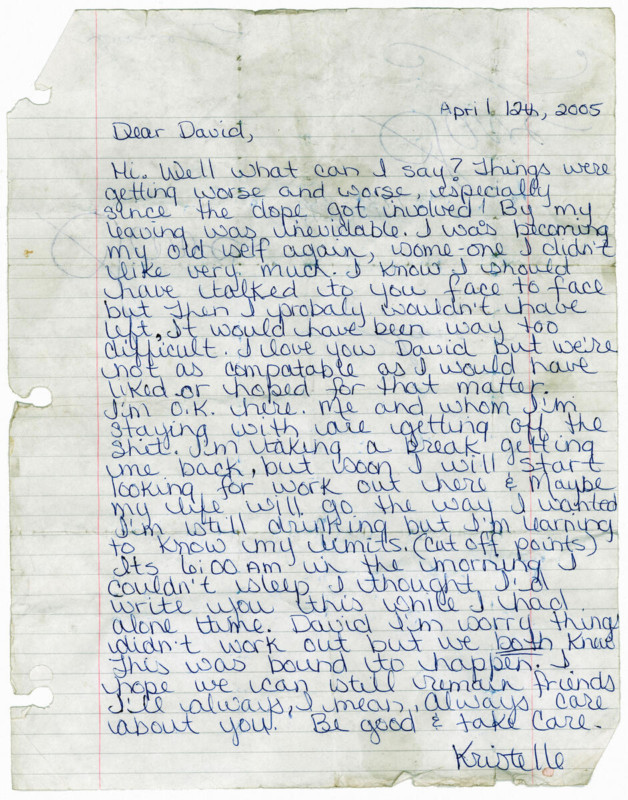 April 12th, 2005
Dear David,
Hi. Well what can I say? Things were
getting worse and worse, especially
since the dope got involved! By my
leaving was unevidable. I was becoming
my old self again, some-one I didn't
like very much. I know I should
have talked to you face to face
but then I probaly wouldn't have
left, It would have been way too
difficult. I love you David but we're
not as compatable as I would have
liked or hoped for that matter.
I'm O.K. here. Me and whom I'm
staying with are getting off the
shit. I'm taking a break getting
me back, but soon I will start
looking for work out here & Maybe
my life will go the way I wanted
I'm still drinking but I'm learning
to know my limits. (cut off points)
Its 6:00 AM in the morning I
couldn't sleep I thought I'd
write you this while I had
alone time. David I'm sorry things
didn't work out but we both knew
this was bound to happen. I
hope we can still remain friends
I'll always, I mean, always care
about you. Be good & take care.
Kristelle